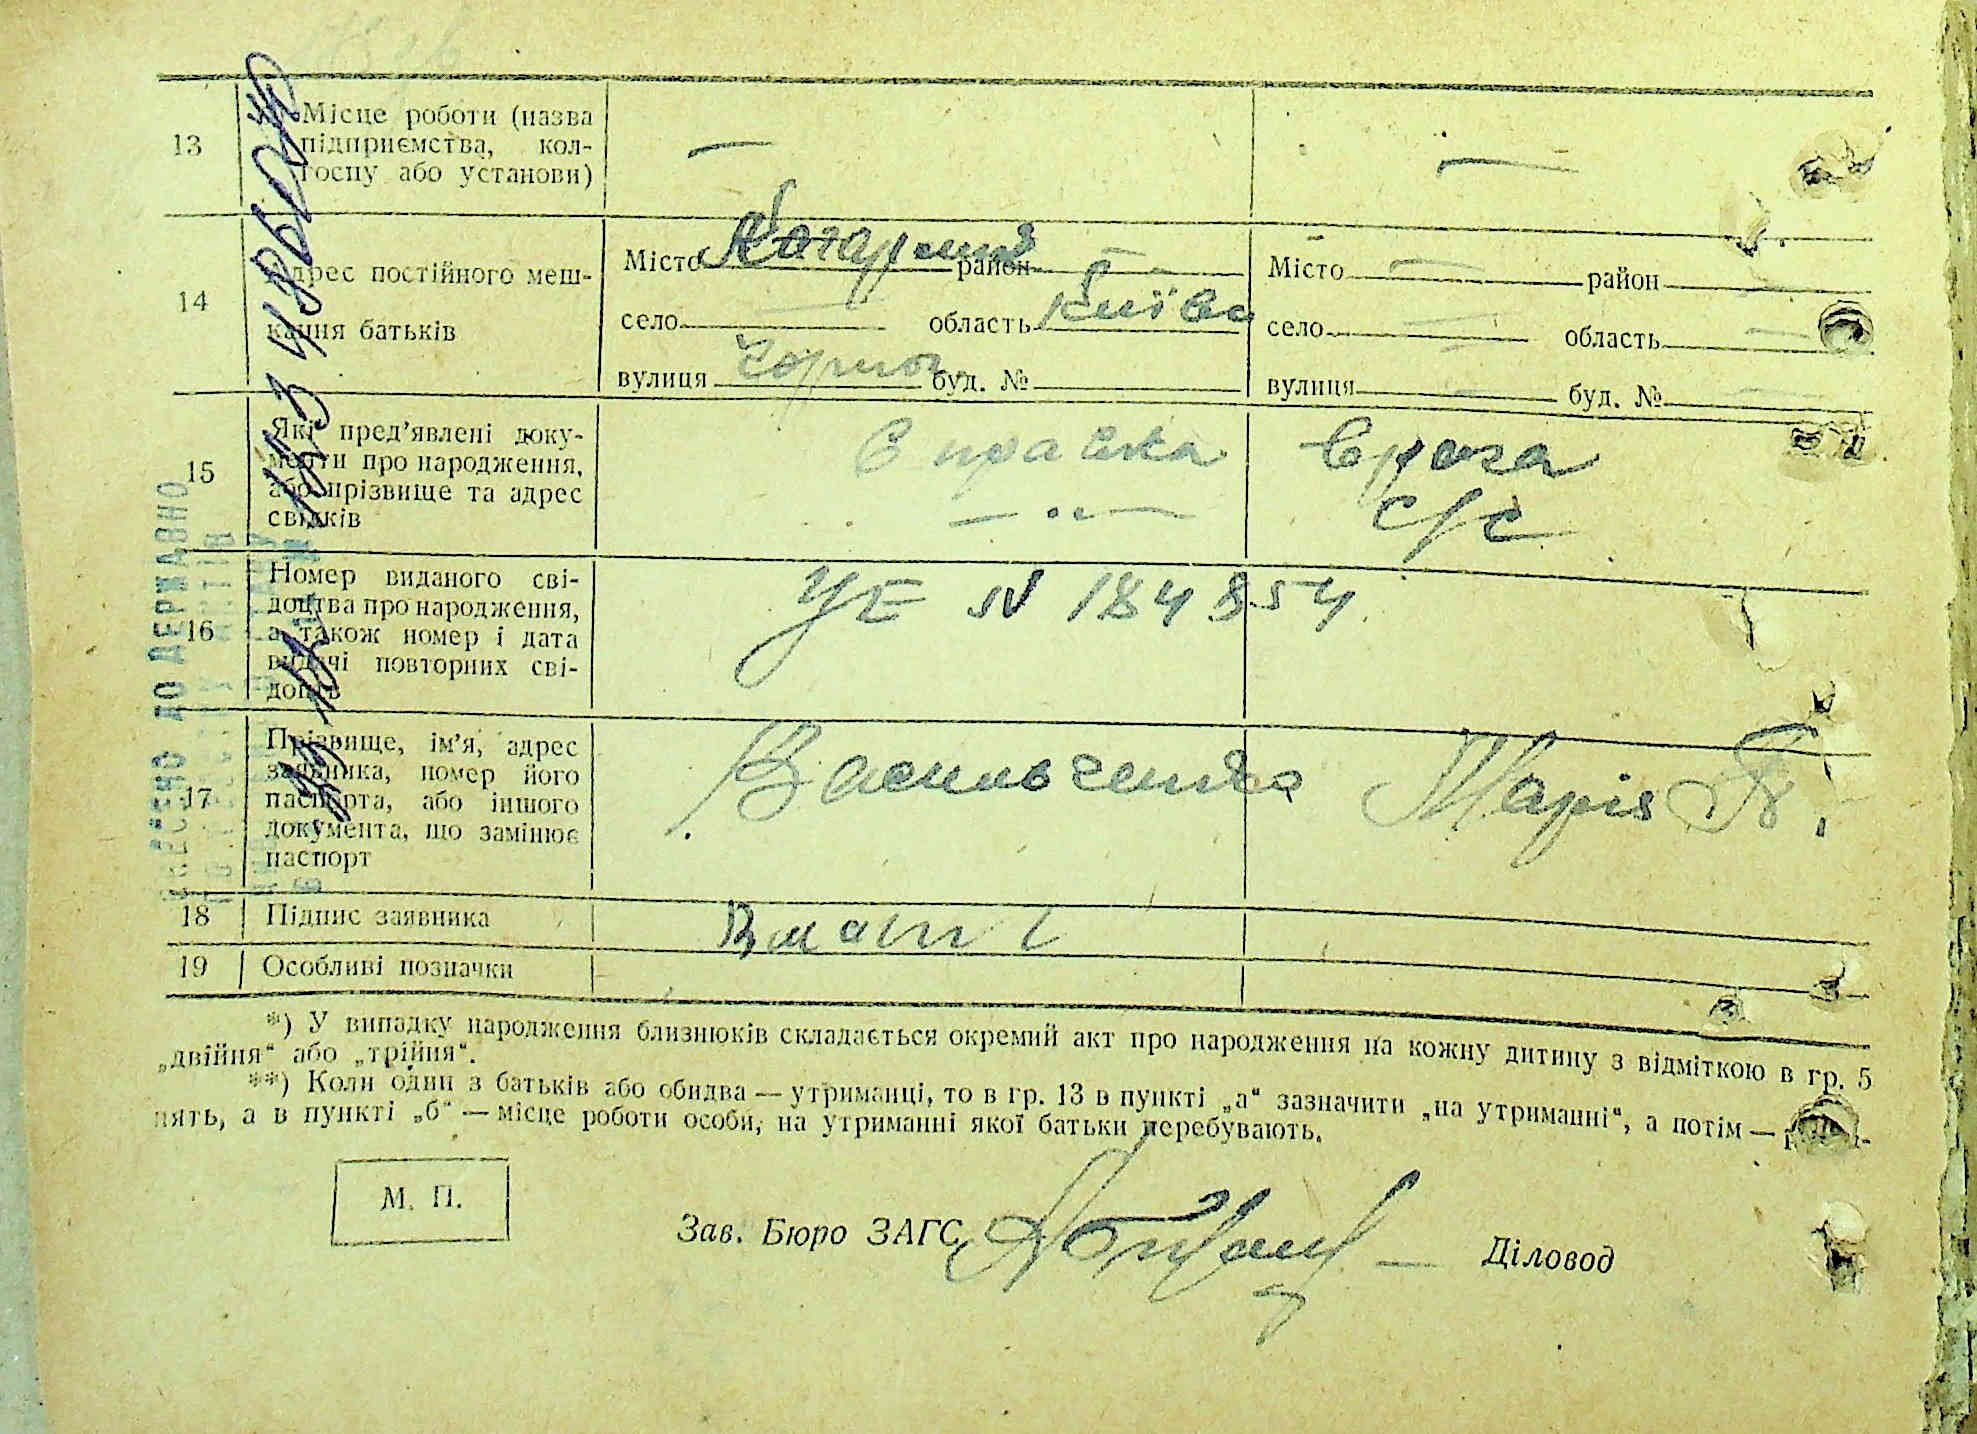 13 Місце роботи (назва
підприємства, кол-
госпу або установи) — —
14 Адрес постійного меш-
кання батьків
Місто район — Місто — район
село — область Київс село — область —
вулиця буд. № вулиця — буд. № —
15 Які пред'явлені доку-
менти про народження,
або прізвище та адрес
свідків
Справка
с/с
16 Номер виданого сві-
доцтва про народження,
а також номер і дата
видачі повторних сві-
доцтв
УЕ N 184854
17 Прізвище, ім'я, адрес
заявника, номер його
паспорта, або іншого
документа, що замінює
паспорт
Васильченко Марія
18 Підпис заявника
19 Особливі позначки
*) У випадку народження близнюків складається окремий акт про народження на кожну дитину з відміткою в гр. 5
„двійня“ або „трійня“.
**) Коли один з батьків або обидва — утриманці, то в гр. 13 в пункті „а“ зазначити „на утриманні“, а потім —
нять, а в пункті „б“ — місце роботи особи, на утриманні якої батьки перебувають.
М. П.
Зав. Бюро ЗАГС — Діловод
ВНЕСЕНО ДО ДЕРЖАВНО